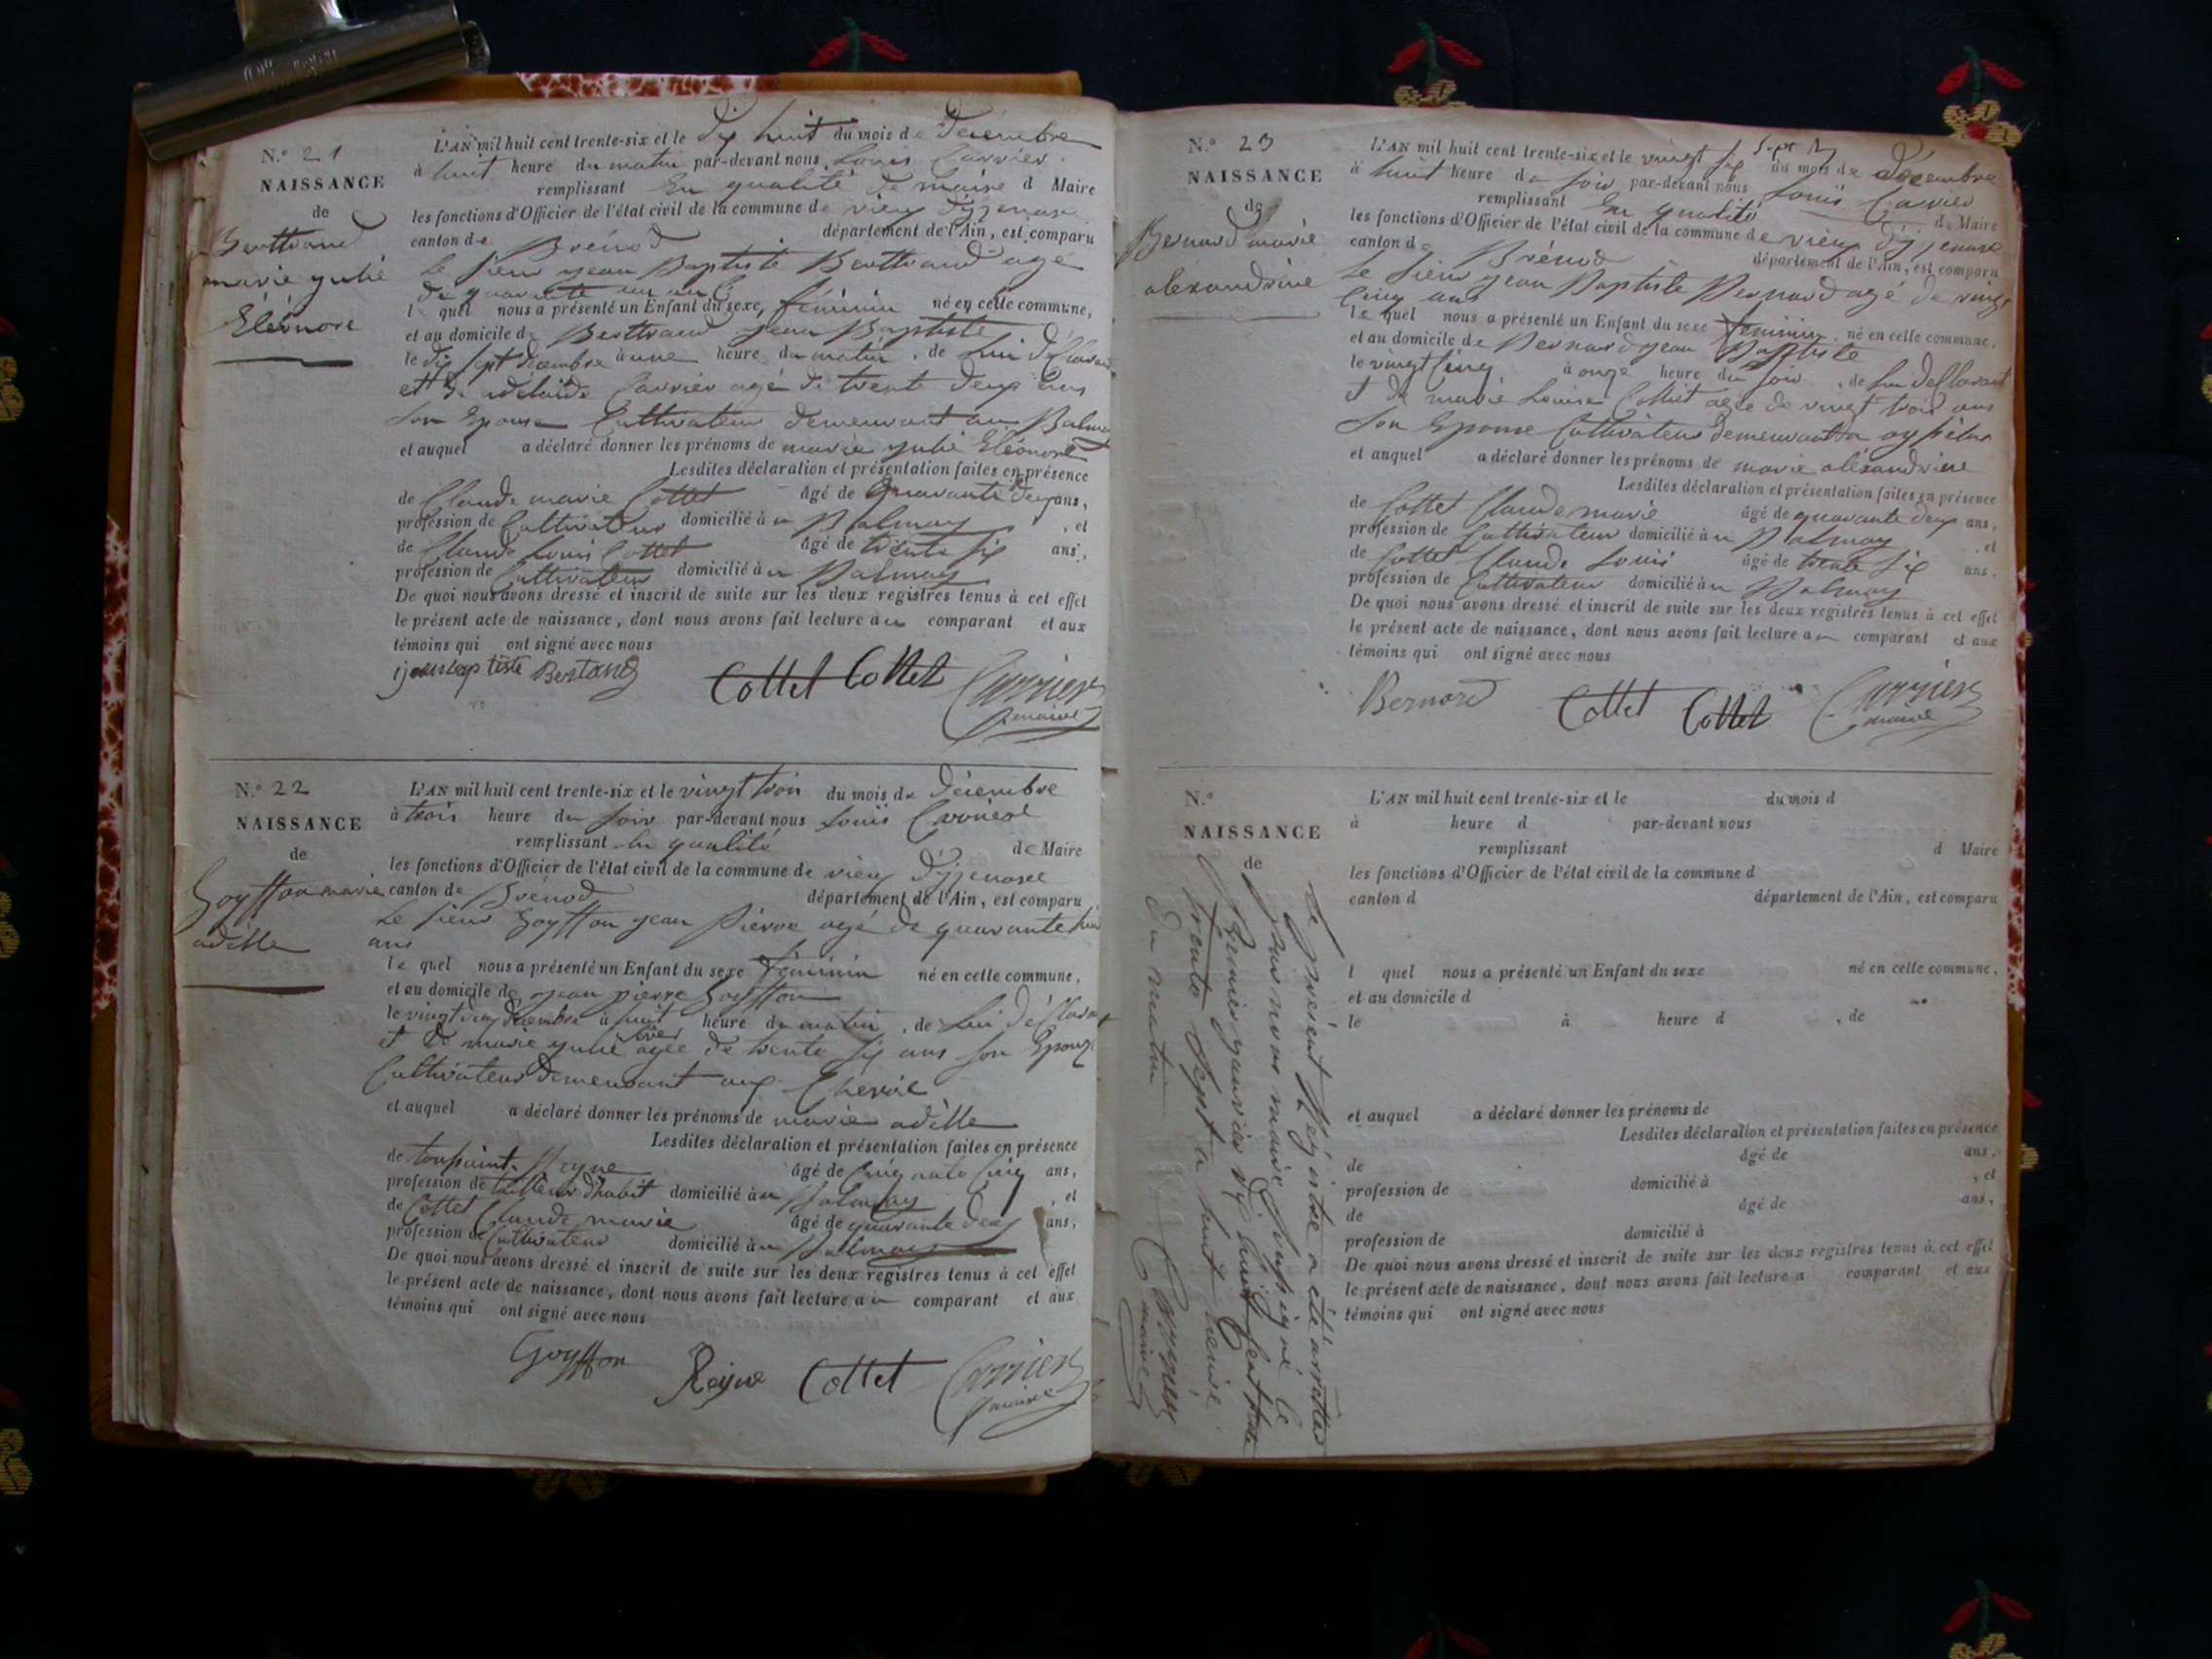 N.° 21
NAISSANCE
de
Berttrand
marie julie
Eléonore
L'AN mil huit cent trente-six et le dix huit du mois de decembre
à huit heure du matin par-devant nous Louis Carrier
remplissant En qualité de maire d Maire
les fonctions d'Officier de l'état civil de la commune de vieu d'izenave
canton de Brénod département de l'Ain, est comparu
Le sieur jean Baptiste Berttrand agé
de quarante un ans
le quel nous a présenté un Enfant du sexe, féminin né en cette commune,
et au domicile de Berttrand jean Baptiste
le dix sept decembre à une heure du matin, de lui déClarant
et d. adelaide Carrier agé de trente deux ans
son Epouse Cultivateur demeurant au Balmay
et auquel a déclaré donner les prénoms de marie julie Eléonore
Lesdites déclaration et présentation faites en présence
de Claude marie Cottet âgé de quarante deux ans,
profession de Cultivateur domicilié à u Balmay, et
de Claude Louis Cottet âgé de trente six ans,
profession de Cultivateur domicilié à u Balmay
De quoi nous avons dressé et inscrit de suite sur les deux registres tenus à cet effet
le présent acte de naissance, dont nous avons fait lecture au comparant et aux
témoins qui ont signé avec nous
jeanbaptiste Bertand Cottet Cottet Carrier
maire
N.° 22
NAISSANCE
de
Goyffon marie
adèlle
L'AN mil huit cent trente-six et le vingt trois du mois de décembre
à trois heure du soir par-devant nous Louis
remplissant En qualité de Maire
les fonctions d'Officier de l'état civil de la commune de vieu d'izenave
canton de Brénod département de l'Ain, est comparu
Le sieur Goyffon jean Pierre agé de quarante
ans
le quel nous a présenté un Enfant du sexe féminin né en cette commune,
et au domicile de jean pierre Goyffon
le vingt deux décembre à huit heure du matin, de lui déClarant
et de marie julie agée de trente six ans son Epouze
Cultivateur demeurant aux
et auquel a déclaré donner les prénoms de marie adèlle
Lesdites déclaration et présentation faites en présence
de toussaint Reyne âgé de Cinquante Cinq ans,
profession de tailleur d'habit domicilié à u Balmay, et
de Cottet Claude marie âgé de quarante deux ans,
profession de Cultivateur domicilié à u Balmay
De quoi nous avons dressé et inscrit de suite sur les deux registres tenus à cet effet
le présent acte de naissance, dont nous avons fait lecture au comparant et aux
témoins qui ont signé avec nous
Goyffon Reyne Cottet Carrier
maire
N.° 23
NAISSANCE
de
Bernard marie
alexandrine
L'AN mil huit cent trente-six et le vingt six du mois de décembre
à huit heure du soir par-devant nous Louis Carrier
remplissant En qualité de Maire
les fonctions d'Officier de l'état civil de la commune de vieu d'izenave
canton de Brénod département de l'Ain, est comparu
Le sieur jean Baptiste Bernard agé de vingt
Cinq ans
le quel nous a présenté un Enfant du sexe féminin né en cette commune,
et au domicile de Bernard jean Baptiste
le vingt Cinq à onze heure du soir, de lui deClarant
et de marie Louise Collet agée de vingt trois ans
Son Epouse Cultivateur demeurant a
et auquel a déclaré donner les prénoms de marie aléxandrine
Lesdites déclaration et présentation faites en présence
de Cottet Claude marie âgé de quarante deux ans,
profession de Cultivateur domicilié à u Balmay, et
de Cottet Claude Louis âgé de trente six ans,
profession de Cultivateur domicilié à u Balmay
De quoi nous avons dressé et inscrit de suite sur les deux registres tenus à cet effet
le présent acte de naissance, dont nous avons fait lecture au comparant et aux
témoins qui ont signé avec nous
Bernard Cottet Cottet Carrier
maire
N.°
NAISSANCE
de
L'AN mil huit cent trente-six et le du mois d
à heure d par-devant nous
remplissant d Maire
les fonctions d'Officier de l'état civil de la commune d
canton d département de l'Ain, est comparu
l quel nous a présenté un Enfant du sexe né en cette commune,
et au domicile d
le à heure d, de
et auquel a déclaré donner les prénoms de
Lesdites déclaration et présentation faites en présence
de âgé de ans,
profession de domicilié à, et
de âgé de ans,
profession de domicilié à
De quoi nous avons dressé et inscrit de suite sur les deux registres tenus à cet effet
le présent acte de naissance, dont nous avons fait lecture a comparant et aux
témoins qui ont signé avec nous
Le présent Régistre a été arrètté
par nous maire soussigné le
Premier janvier dix huit Cent trente
trente sept a huit heure
du matin Carrier
maire